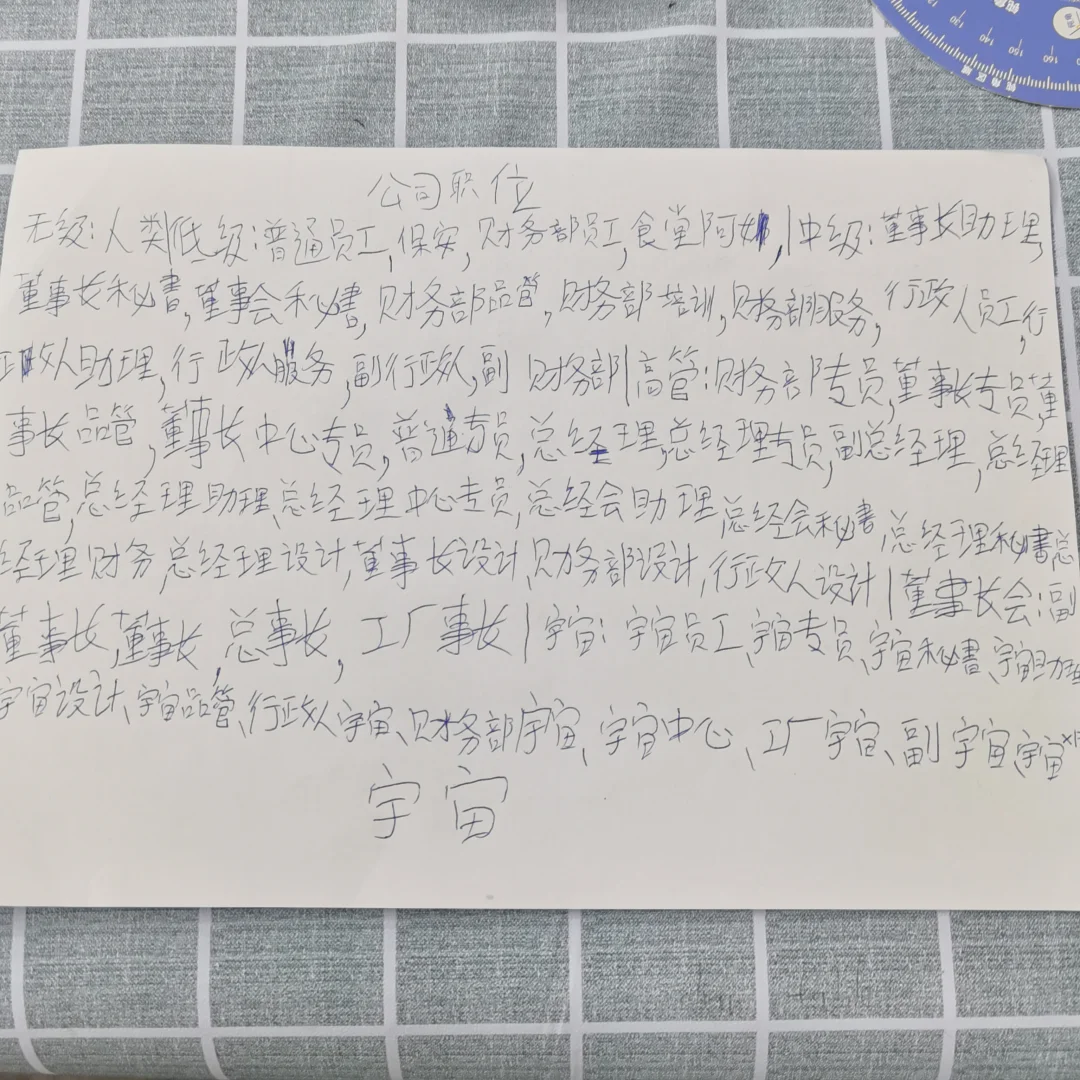 120
130
140
150
160
公司职位
无级:人类|低级:普通员工,保安,财务部员工,食堂阿姨,|中级:董事长助理,
董事长秘书,董事会秘书,财务部品管,财务部培训,财务部服务,行政人员工,行
政人助理,行政人服务,副行政人,副财务部|高管:财务部专员,董事长专员,董
事长品管,董事长中心专员,普通专员,总经理,总经理专员,副总经理,总经理
品管,总经理助理、总经理中心专员,总经会助理、总经会秘书、总经理秘书、总
经理财务、总经理设计,董事长设计、财务部设计,行政人设计|董事长会:副
董事长,董事长,总事长,工厂事长|宇宙:宇宙员工、宇宙专员、宇宙秘书、宇宙助理
宇宙设计、宇宙品管、行政人宇宙、财务部宇宙、宇宙中心、工厂宇宙、副宇宙、宇宙
宇宙